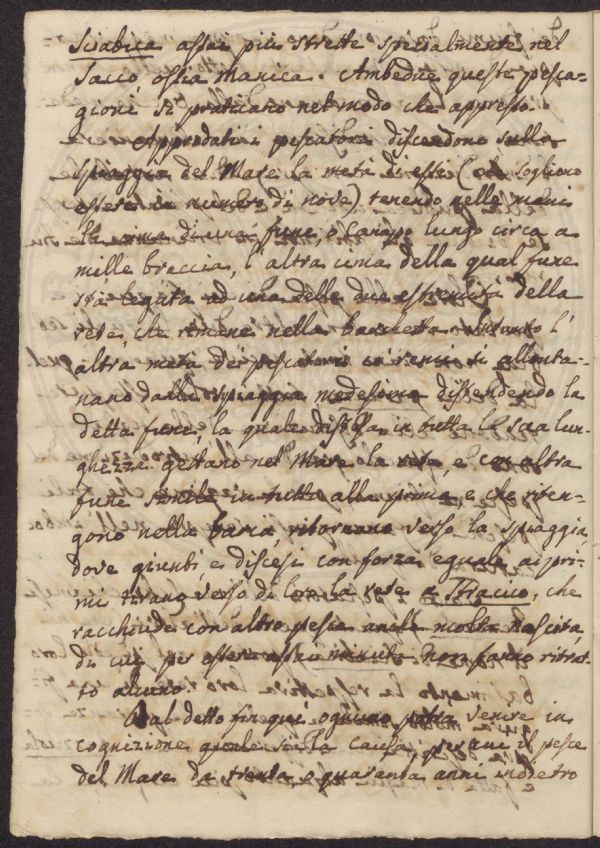 Sciabica assai più strette specialmente nel
sacco ossia manica. Ambedue queste pesca-
gioni si praticano nel modo che appresso.
Approdati i pescatori discendono sulla
spiaggia del Mare la metà di essi (che sogliono
essere in numero di nove) tenendo nelle mani
la cima di una fune, o canapo lungo circa a
mille braccia, l'altra cima della qual fune
sta legata ad una delle due estremità della
rete, che rimane nella barchetta. Intanto l'
altra metà dei pescatori si allonta-
nano dalla spiaggia medesima distendendo la
detta fune, la quale distesa in tutta la sua lun-
ghezza gettano nel Mare la rete, e con altra
fune simile in tutto alla prima, e che riten-
gono nella barca, ritornano verso la spiaggia
dove giunti, e discesi con forza eguale ai pri-
mi tirano verso di loro la rete a Stracico, che
racchiude con altro pesce anche molta nascita,
di cui per essere assai minuta non fanno ritrat-
to alcuno.
Dal detto fin qui ognuno potrà venire in
cognizione quale sia la causa, per cui il pesce
del Mare da trenta, o quaranta anni indietro